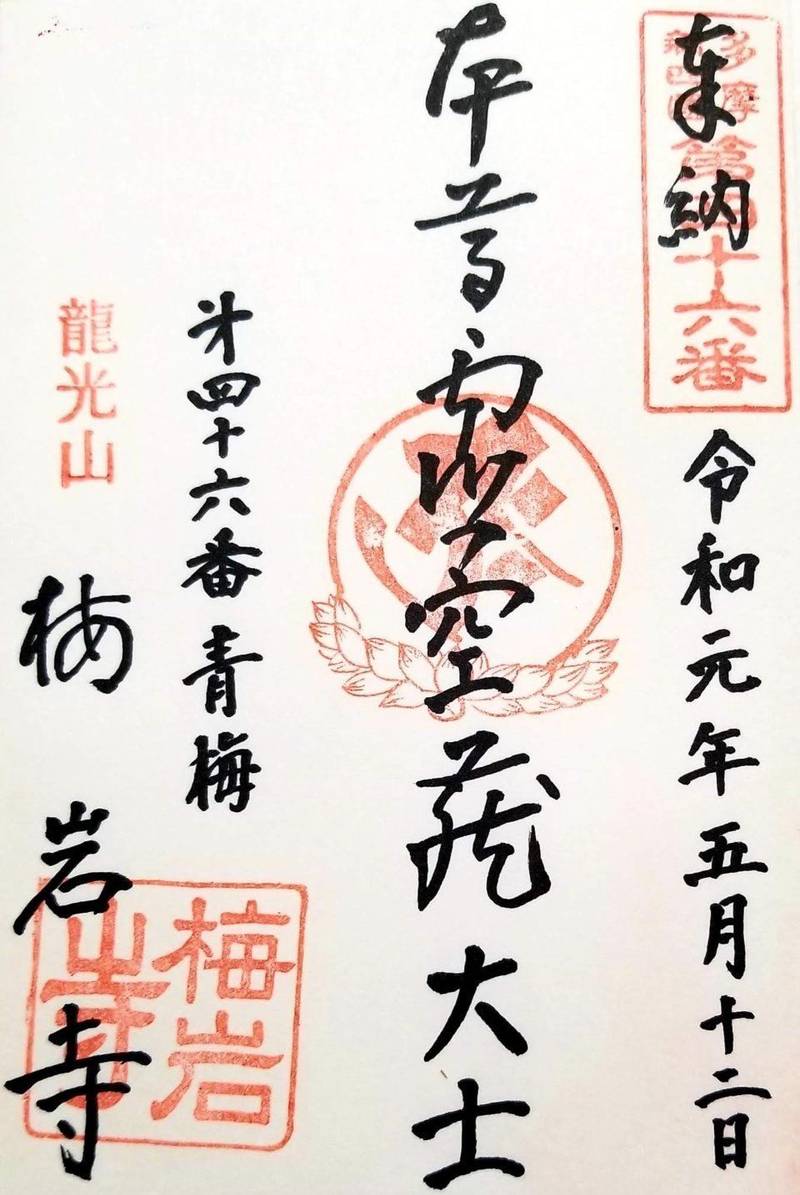 奉納
多摩
新四国
第四十六番
令和元年五月十二日
本尊虚空蔵大士
第四十六番青梅
龍光山
梅岩寺
梅岩
寺